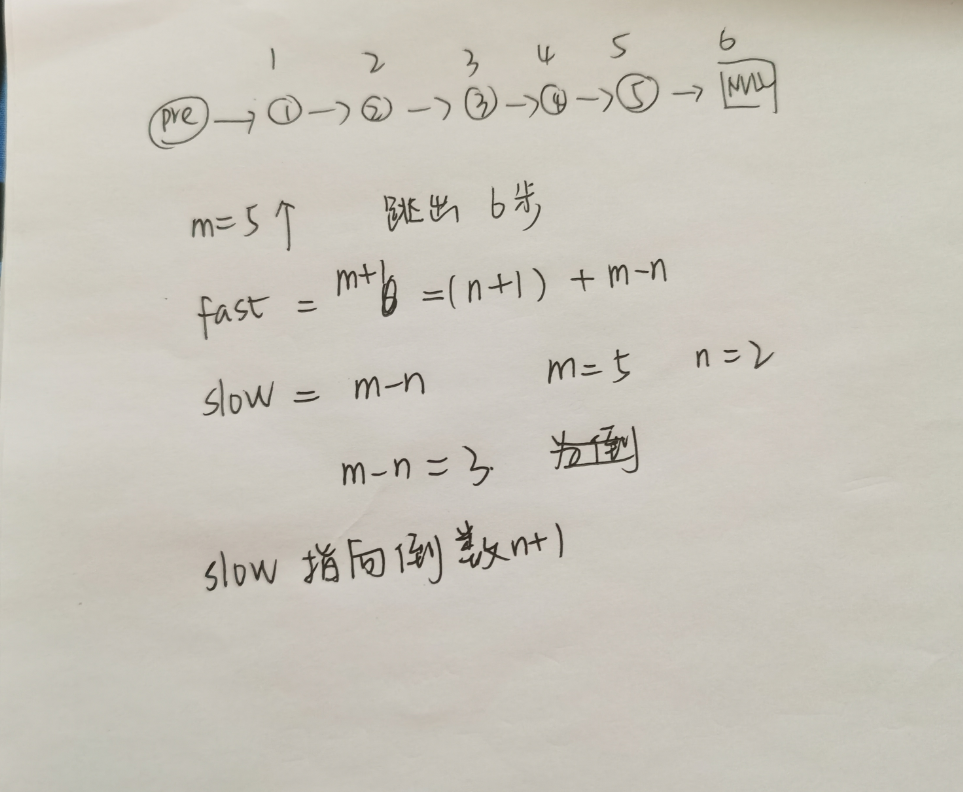 1 2 3 4 5 6
pre → ① → ② → ③ → ④ → ⑤ → NULL
m=5个 跳出 6步
fast = m+1 6 =(n+1) + m-n
slow = m-n m=5 n=2
m-n=3. 为倒
slow 指向倒数n+1